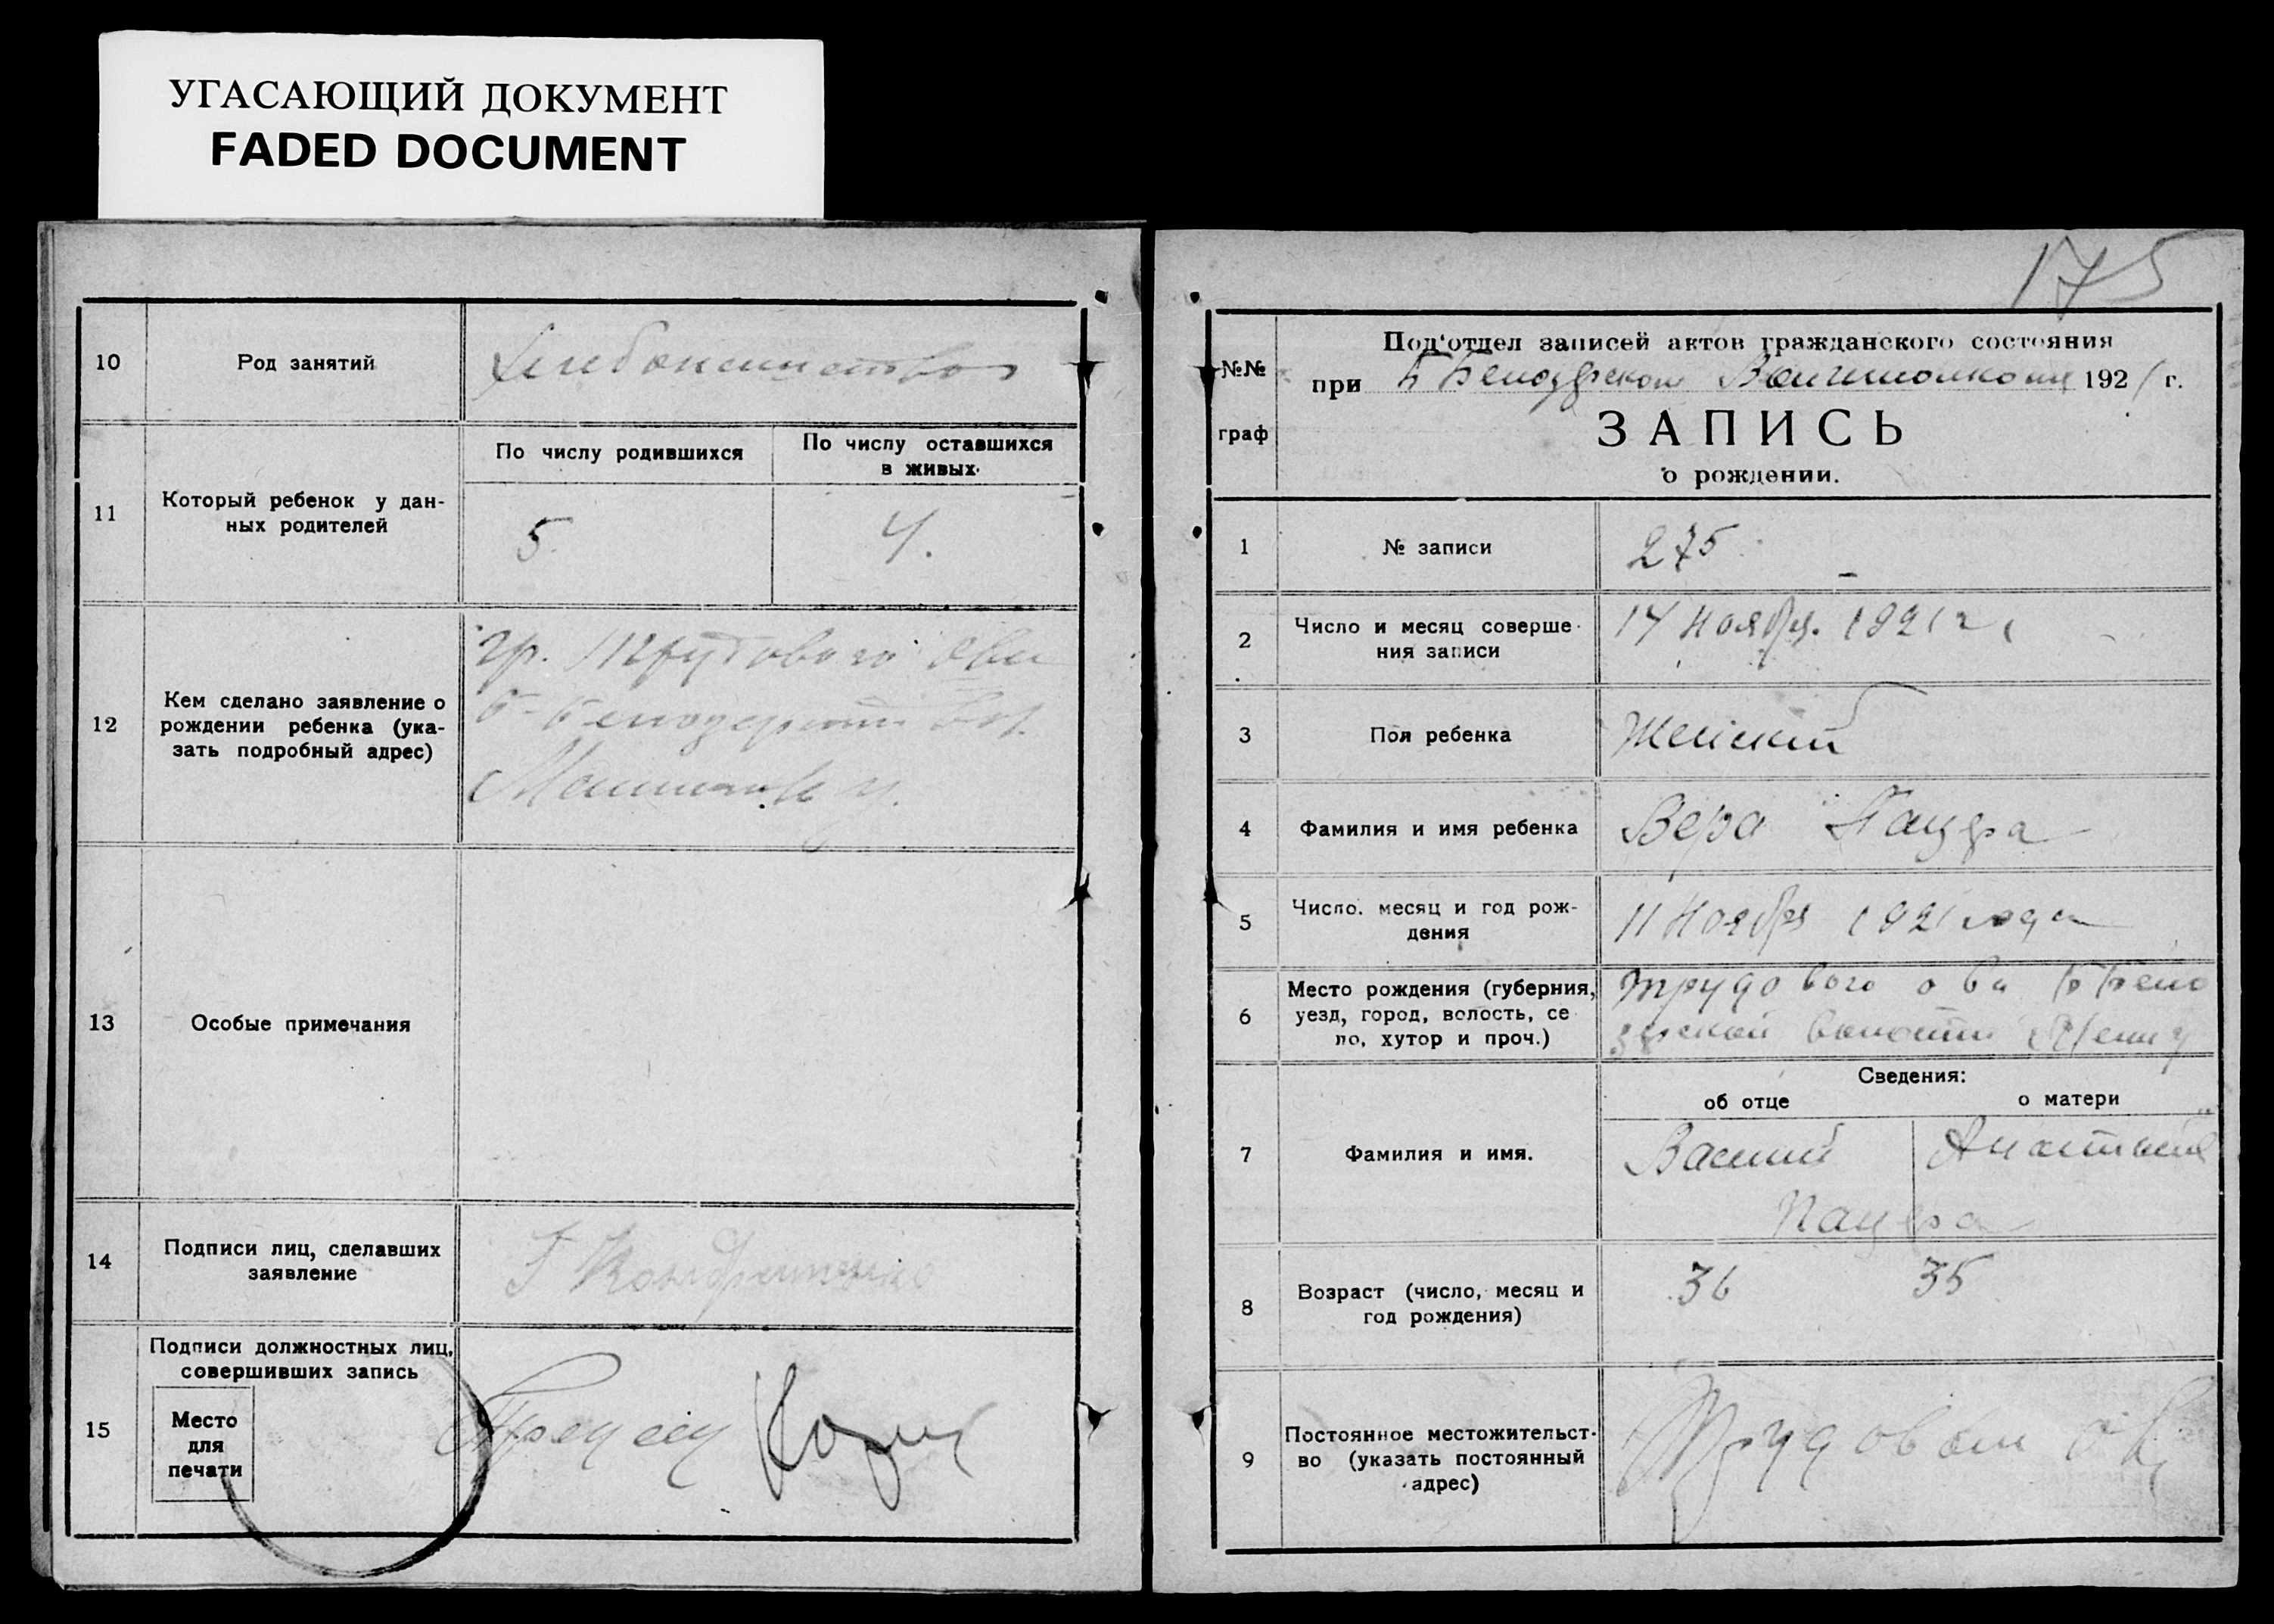 УГАСАЮЩИЙ ДОКУМЕНТ
FADED DOCUMENT
10
Род занятий
Хлебопашество
11
Который ребенок у дан-
ных родителей
По числу родившихся
5
По числу оставшихся
в живых
4.
12
Кем сделано заявление о
рождении ребенка (ука-
зать подробный адрес)
гр. Трудового
13
Особые примечания
14
Подписи лиц, сделавших
заявление
15
Подписи должностных лиц,
совершивших запись
Место
для
печати
175
№№
граф
Под'отдел записей актов гражданского состояния
при Б Белозерском 1921 г.
ЗАПИСЬ
о рождении.
1
№ записи
275
2
Число и месяц соверше-
ния записи
14 Ноября. 1921 г.
3
Пол ребенка
Женский
4
Фамилия и имя ребенка
Вера Пацера
5
Число, месяц и год рож-
дения
11 Ноября 1921 года
6
Место рождения (губерния,
уезд, город, волость, се-
ло, хутор и проч.)
Трудового о ва Б Бело
зерской волости
Сведения:
об отце
о матери
7
Фамилия и имя.
Василий
Анастасия
Пацера
8
Возраст (число, месяц и
год рождения)
36
35
9
Постоянное местожительст-
во (указать постоянный
адрес)
Трудовом